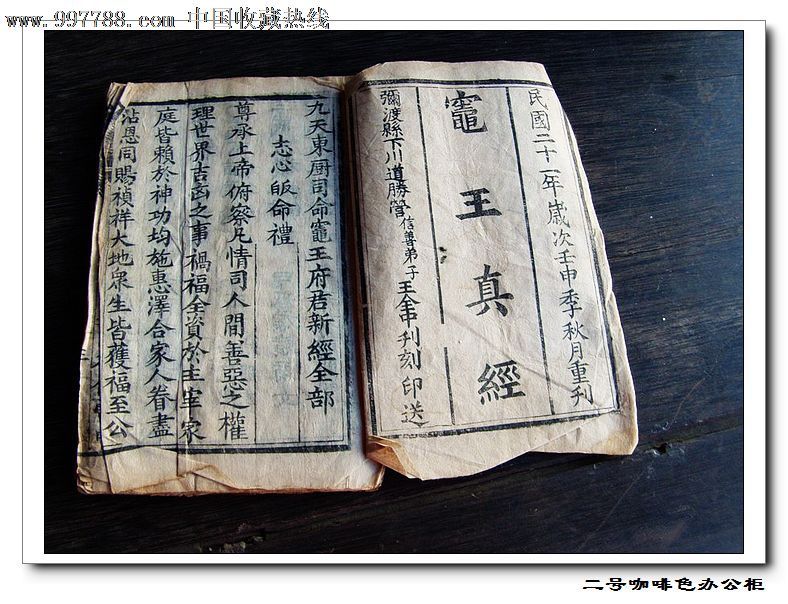 www.997788.com 中国收藏热线
民國二十一年歲次壬申季秋月重刊
竈王真經
彌渡縣下川道勝營信善弟子王全申刊刻印送
九天東厨司命竈王府君新經全部
志心皈命禮
尊承上帝俯察凡情司人間善惡之權
理世界吉凶之事禍福全資於主宰家
庭皆賴於神功均施惠澤合家人眷盡
沾恩同賜禎祥大地眾生皆獲福至公
二号咖啡色办公柜